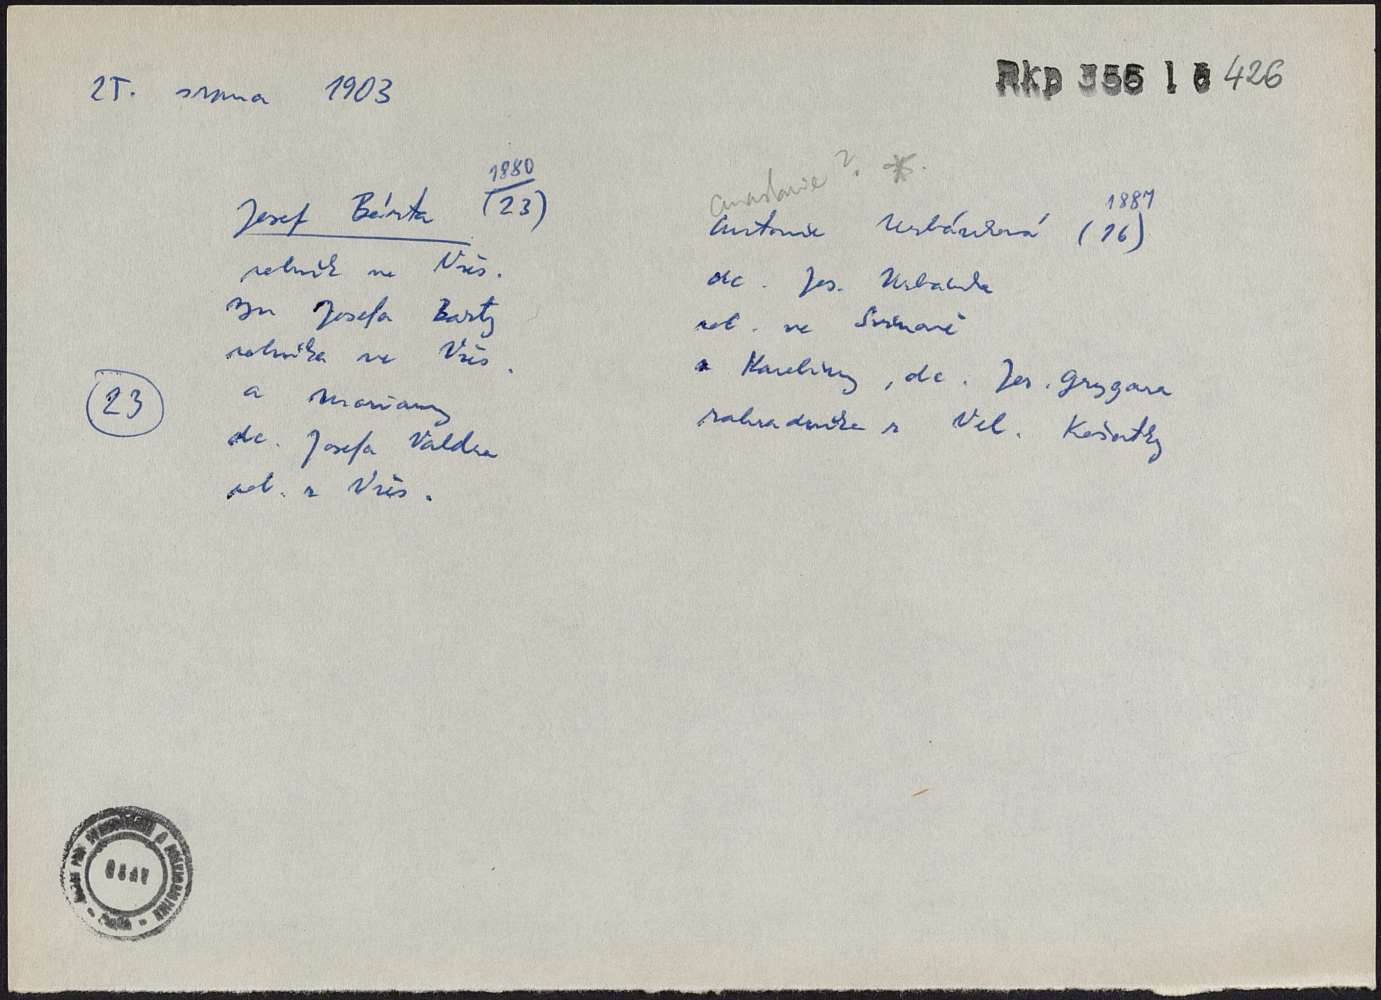 25. srpna 1903
RKP 355 I 6 426
1880
Josef Bárta (23)
rolník ve Vřes.
syn Josefa Barty
rolníka ve Vřes.
a Mariany
dc. Josefa Valdra
rol. z Vřes.
23
Anastasie ? *.
1887
Antonie Urbánková (16)
dc. Jos. Urbánka
rol. ve Svinově
a Karoliny, dc. Jos. Grygara
zahradníka z Vel. Košatky